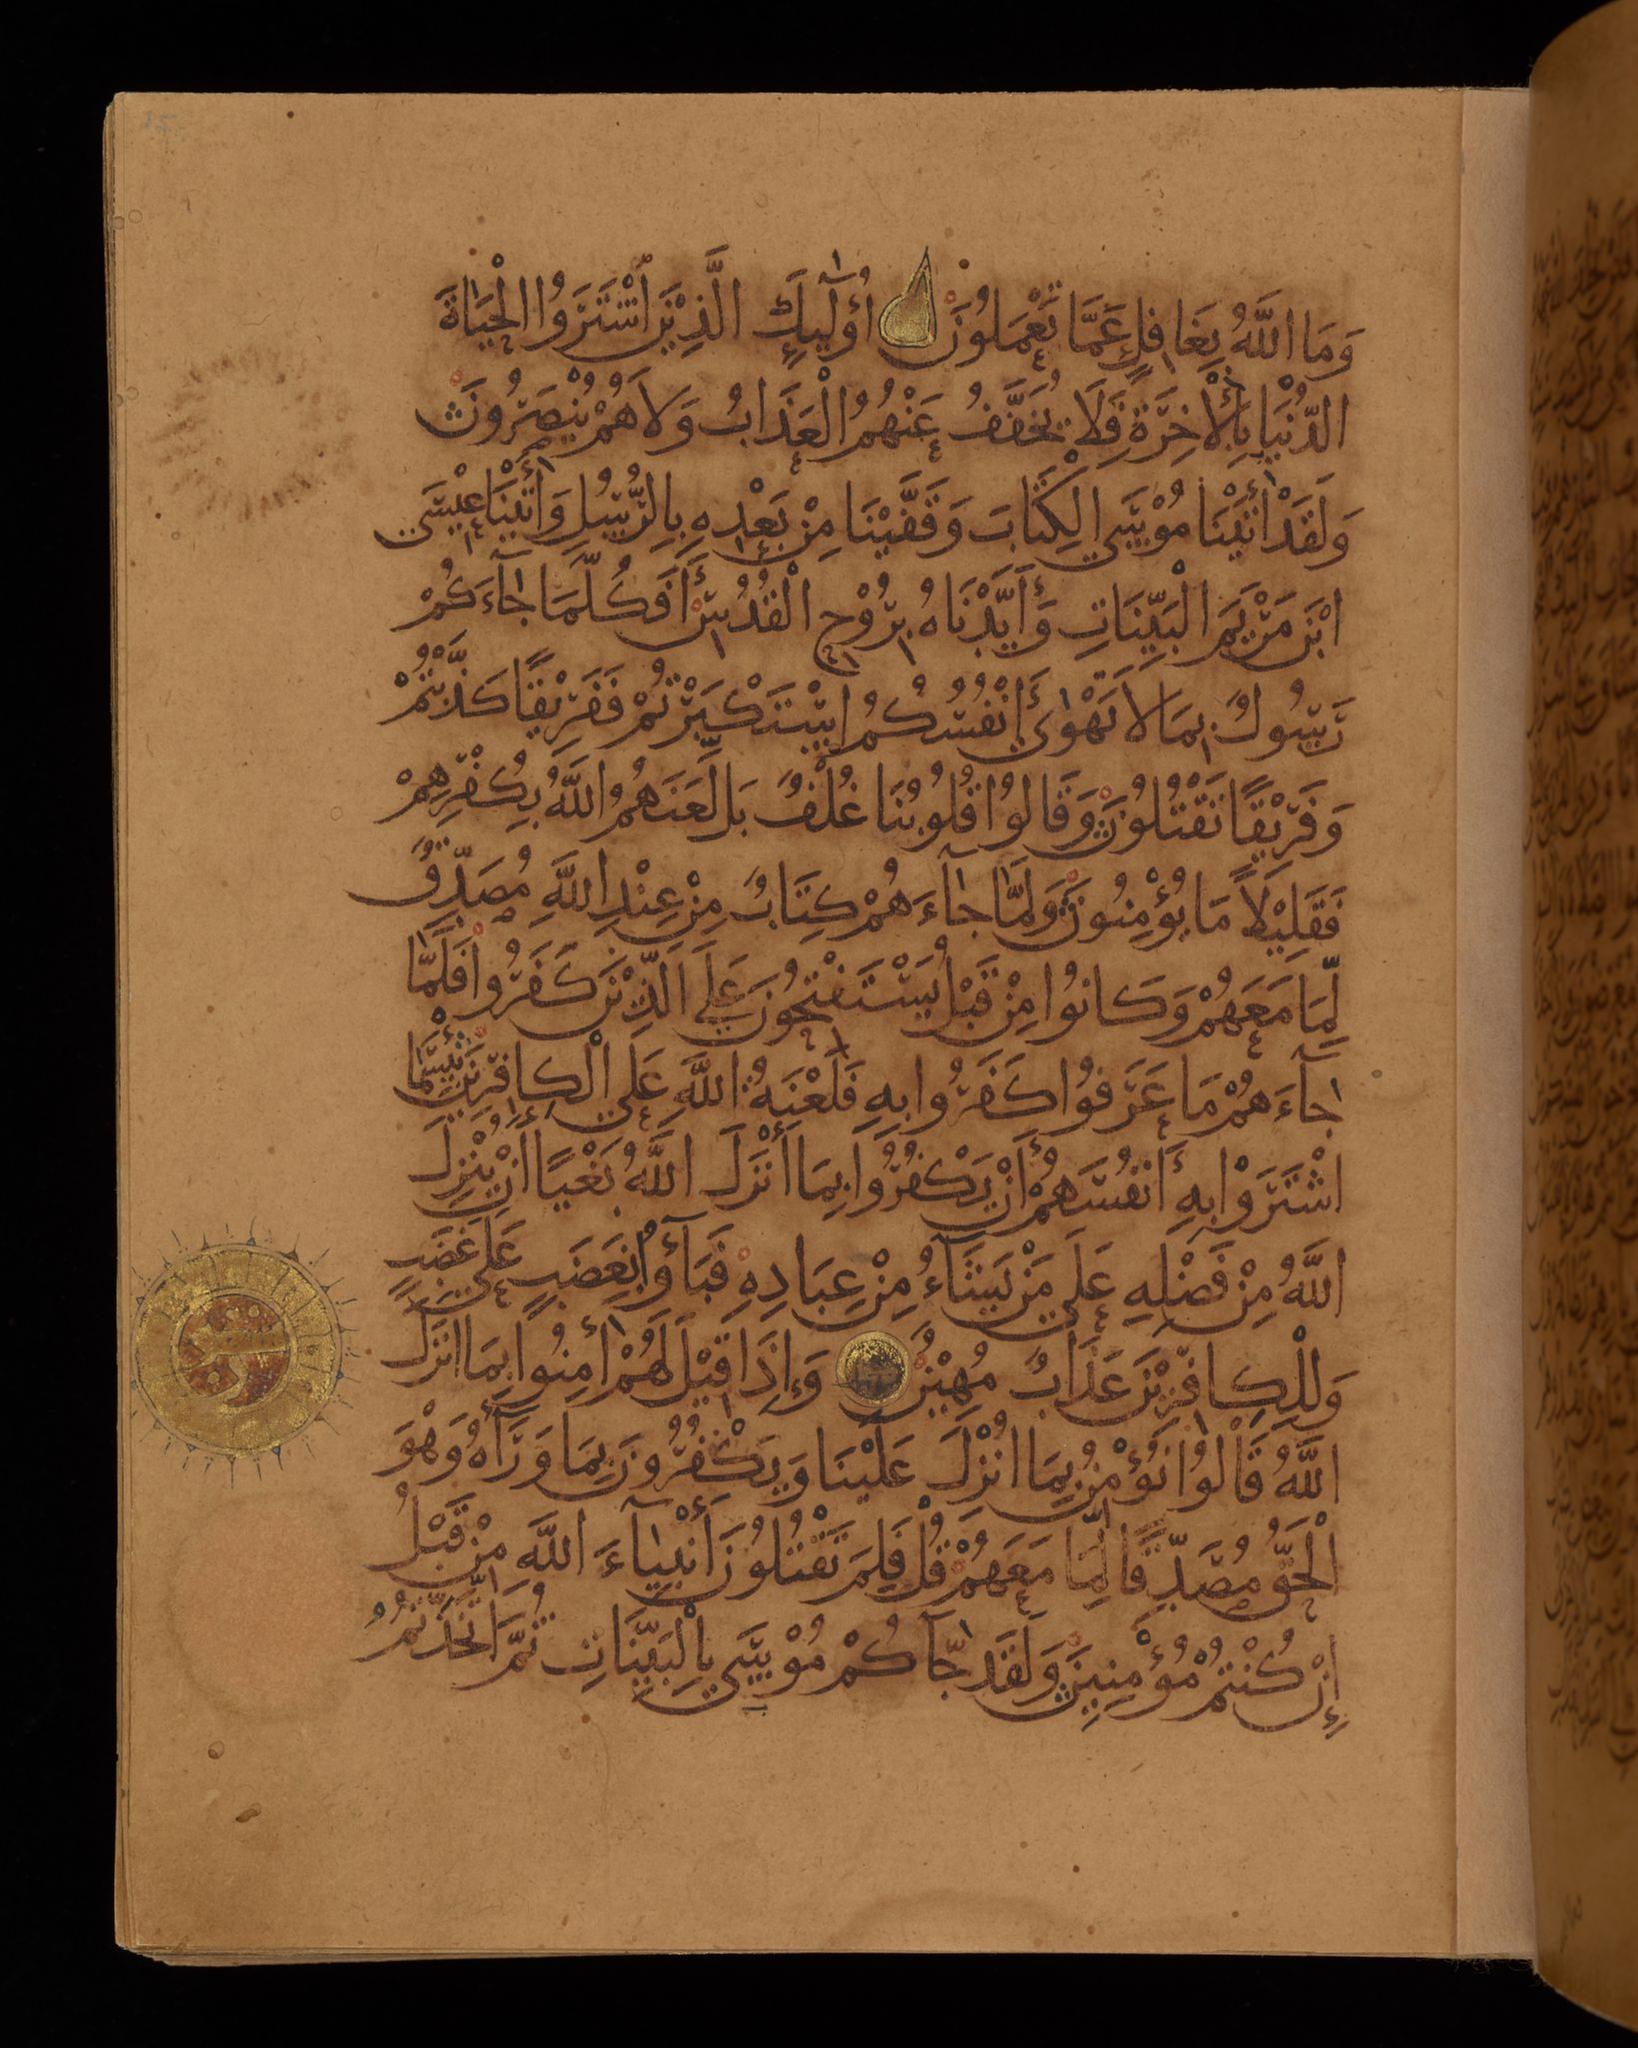 وَمَا اللَّهُ بِغَافِلٍ عَمَّا تَعْمَلُونَ أُولَٰئِكَ الَّذِينَ اشْتَرَوُا الْحَيَاةَ
الدُّنْيَا بِالْأَخِرَةِ فَلَا يُخَفَّفُ عَنْهُمُ الْعَذَابُ وَلَا هُمْ يُنْصَرُونَ
وَلَقَدْ أٰتَيْنَا مُوْسَى الْكِتَابَ وَقَفَّيْنَا مِنْ بَعْدِهِ بِالرُّسُلِ وَأٰتَيْنَا عِيْسَى
ابْنَ مَرْيَمَ الْبَيِّنَاتِ وَأَيَّدْنَاهُ بِرُوْحِ الْقُدُسِ أَفَكُلَّمَا جَآءَكُمْ
رَسُولٌ بِمَا لَا تَهْوَى أَنْفُسُكُمُ اسْتَكْبَرْتُمْ فَفَرِيْقًا كَذَّبْتُمْ
وَفَرِيْقًا تَقْتُلُوْنَ وَقَالُوْا قُلُوْبُنَا غُلْفٌ بَل لَعَنَهُمُ اللَّهُ بِكُفْرِهِمْ
فَقَلِيْلًا مَا يُؤْمِنُوْنَ وَلَمَّا جَآءَهُمْ كِتَابٌ مِنْ عِنْدِ اللَّهِ مُصَدِّقٌ
لِّمَا مَعَهُمْ وَكَانُوْا مِنْ قَبْلُ يَسْتَفْتِحُوْنَ عَلَى الَّذِيْنَ كَفَرُوا فَلَمَّا
جَآءَهُمْ مَا عَرَفُوْا كَفَرُوا بِهِ فَلَعْنَةُ اللَّهِ عَلَى الْكَافِرِيْنَ بِئْسَمَا
اشْتَرَوْا بِهِ أَنْفُسَهُمْ أَنْ يَكْفُرُوْا بِمَا أَنْزَلَ اللَّهُ بَغْيًا أَنْ يُنْزِلَ
اللَّهُ مِنْ فَضْلِهِ عَلَى مَنْ يَشَآءُ مِنْ عِبَادِهِ فَبَآؤُا بِغَضَبٍ عَلَى غَضَبٍ
وَلِلْكَافِرِيْنَ عَذَابٌ مُهِيْنٌ وَإِذَا قِيْلَ لَهُمْ أٰمِنُوا بِمَا أَنْزَلَ
اللَّهُ قَالُوْا نُؤْمِنُ بِمَا أُنْزِلَ عَلَيْنَا وَيَكْفُرُوْنَ بِمَا وَرَآءَهُ وَهْوَ
الْحَقُّ مُصَدِّقًا لِمَا مَعَهُمْ قُلْ فَلِمَ تَقْتُلُوْنَ أَنْبِيَآءَ اللَّهِ مِنْ قَبْلُ
إِنْ كُنْتُمْ مُؤْمِنِيْنَ وَلَقَد جَّآءَكُمْ مُوْسَى بِالْبَيِّنَاتِ ثُمَّ اتَّخَذتُّمُ